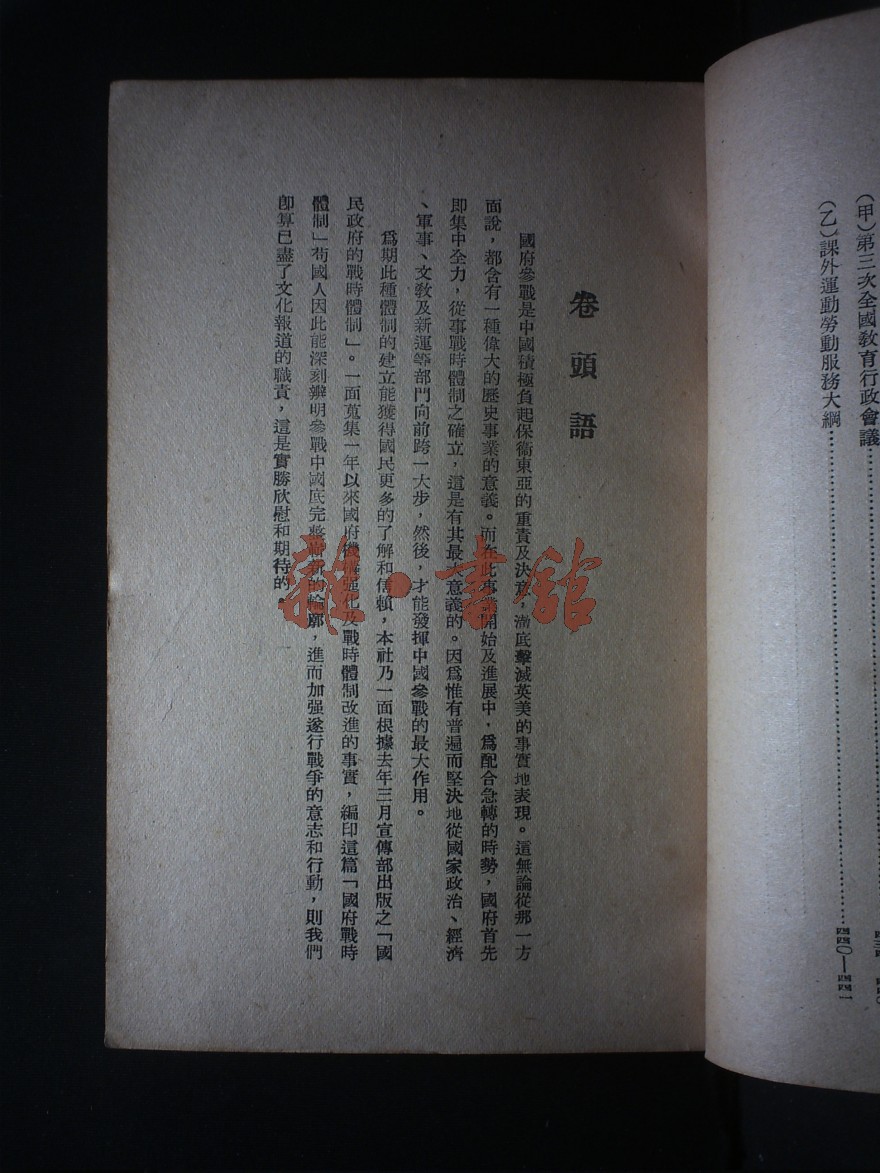 (甲)第三次全國敎育行政會議
(乙)課外運動勞動服務大綱……………………四四〇—四四一
卷頭語
國府參戰是中國積極負起保衞東亞的重責及決意，澈底擊滅英美的事實地表現。這無論從那一方
面說，都含有一種偉大的歷史事業的意義。而在此事開始及進展中，爲配合急轉的時勢，國府首先
即集中全力，從事戰時體制之確立，這是有其最大意義的。因爲惟有普遍而堅決地從國家政治、經濟
、軍事、文敎及新運等部門向前跨一大步，然後，才能發揮中國參戰的最大作用。
爲期此種體制的建立能獲得國民更多的了解和信賴，本社乃一面根據去年三月宣傳部出版之「國
民政府的戰時體制」。一面蒐集一年以來國府機構强化及戰時體制改進的事實，編印這篇「國府戰時
體制」苟國人因此能深刻辨明參戰中國底完整嶄新的輪廓，進而加强遂行戰爭的意志和行動，則我們
卽算已盡了文化報道的職責，這是實勝欣慰和期待的。
雜·書館